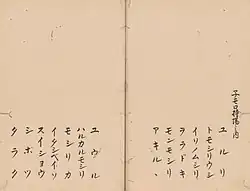 ユルリ
トモシリウシ
イリノムシリ
ヲラドキ
モンモシリ
アキルヽ
ユウル
ハルカルモシリ
モシリカ
イタシベイソ
スイショウ
シボツ
タラク